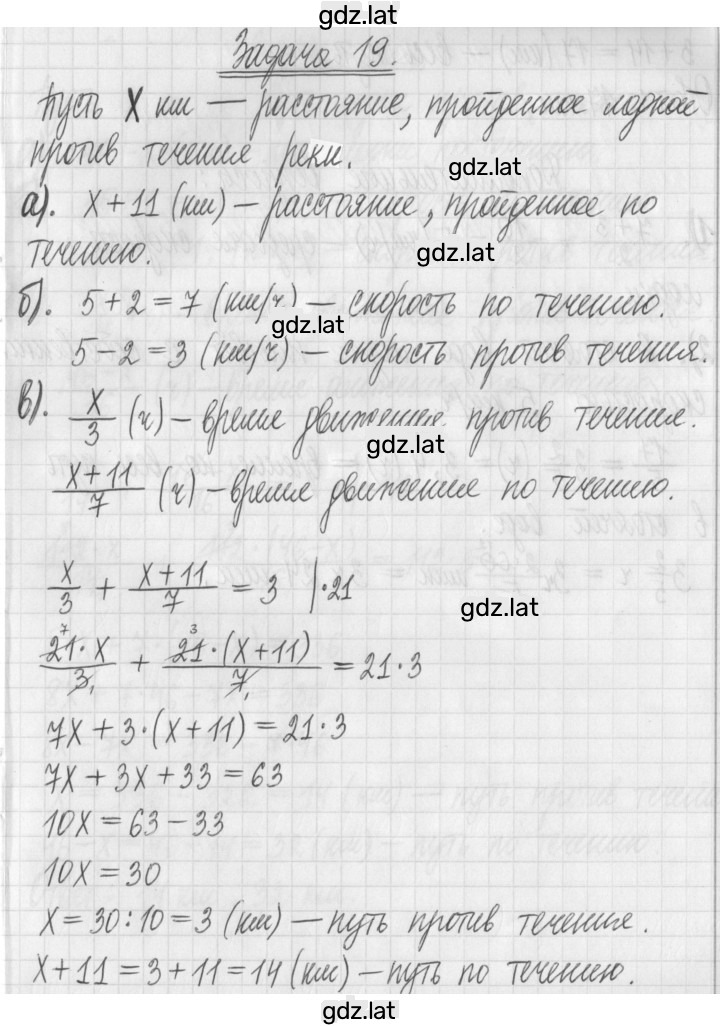 gdz.lat
Задача 19.
Пусть x км — расстояние, пройденное лодкой
против течения реки.
gdz.lat
а). x + 11 (км) — расстояние, пройденное по
течению.
б). 5 + 2 = 7 (км/ч) — скорость по течению.
gdz.lat
5 − 2 = 3 (км/ч) — скорость против течения.
в). x/3 (ч) — время движения против течения.
gdz.lat
(x + 11)/7 (ч) — время движения по течению.
x/3 + (x + 11)/7 = 3 | · 21
gdz.lat
21 · x/3 + 21 · (x + 11)/7 = 21 · 3
7x + 3 · (x + 11) = 21 · 3
7x + 3x + 33 = 63
10x = 63 − 33
10x = 30
x = 30 : 10 = 3 (км) — путь против течения.
x + 11 = 3 + 11 = 14 (км) — путь по течению.
gdz.lat